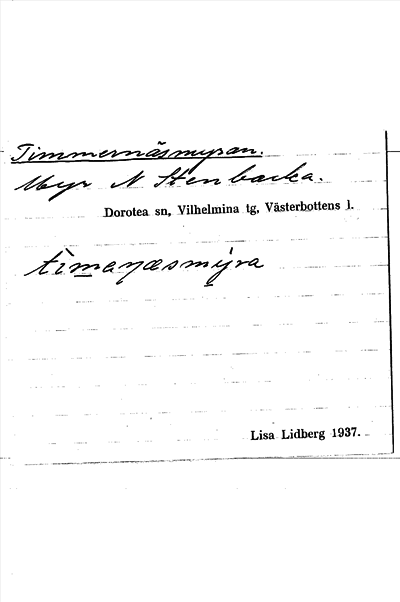 Timmernäsmyran.
Myr N Stenbacka.
Dorotea sn, Vilhelmina tg, Västerbottens l.
Lisa Lidberg 1937.